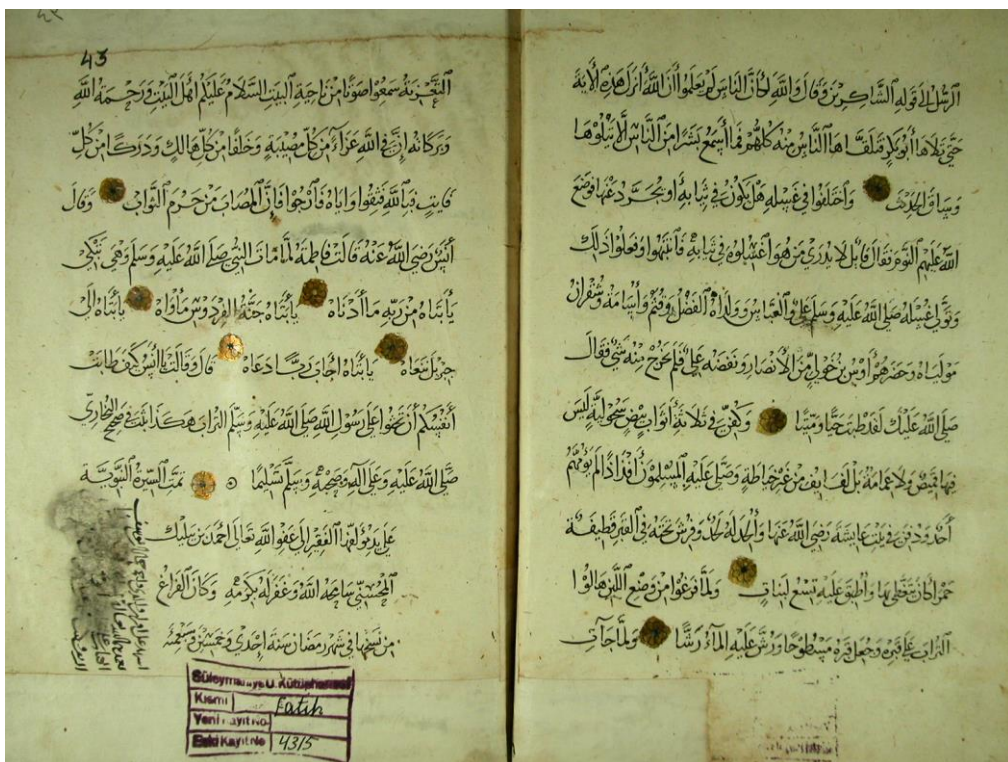 الرسل إلى قوله الشاكرين وقال والله لكأن الناس لم يعلموا أن الله أنزل هذه الآية
حتى تلاها أبو بكر فتلقاها الناس منه كلهم فما أسمع بشرا من الناس إلا يتلوها
وساق الحديث واختلفوا في غسله هل يكون في ثيابه أو يجرد عنها فوضع
الله عليهم النوم فقال قائل لا يدرى من هو اغسلوه في ثيابه فانتبهوا وفعلوا ذلك
وتولى غسله صلى الله عليه وسلم علي والعباس وولداه الفضل وقثم وأسامة وشقران
مولياه وحضرهم أوس بن خولي من الأنصار ونفضه علي فلم يخرج منه شيء فقال
صلى الله عليك لقد طبت حيا وميتا وكفن في ثلاثة أثواب بيض سحولية ليس
فيها قميص ولا عمامة بل لفايف من غير خياطة وصلى عليه المسلمون أفذاذا لم يؤمهم
أحد ودفن في بيت عايشة رضي الله عنها وألحد له لحد وفرش تحته في القبر قطيفة
حمرا كان يتغطى بها وأطبق عليه تسع لبنات ولما فرغوا من وضع اللبن هالوا
التراب على قبره وجعل قبره مسطوحا ورش عليه الماء رشا ولما جآت
43
التعزية سمعوا صوتا من ناحية البيت السلام عليكم أهل البيت ورحمة الله
وبركاته إن في الله عزاء من كل مصيبة وخلفا من كل هالك ودركا من كل
فايت فبالله فثقوا وإياه فارجوا فإن المصاب من حرم الثواب وقال
أنس رضي الله عنه قالت فاطمة لما مات النبي صلى الله عليه وسلم وهي تبكي
يا أبتاه من ربه ما أدناه يا أبتاه جنة الفردوس مأواه يا أبتاه إلى
جبريل ننعاه يا أبتاه أجاب ربا دعاه قال وقالت يا أنس كيف طابت
أنفسكم أن تحثوا على رسول الله صلى الله عليه وسلم التراب هكذا ثبت في صحيح البخاري
صلى الله عليه وعلى آله وصحبه وسلم تسليما تمت السيرة النبوية
على يد مؤلفها الفقير إلى عفو الله تعالى أحمد بن
المحسني سامحه الله وغفر له بكرمه وكان الفراغ
من نسخها في شهر رمضان سنة إحدى وخمسين وسبعمئة
Süleymaniye U. Kütüphanesi
Kısmı Fatih
Yeni Kayıt No.
Eski Kayıt No 4315